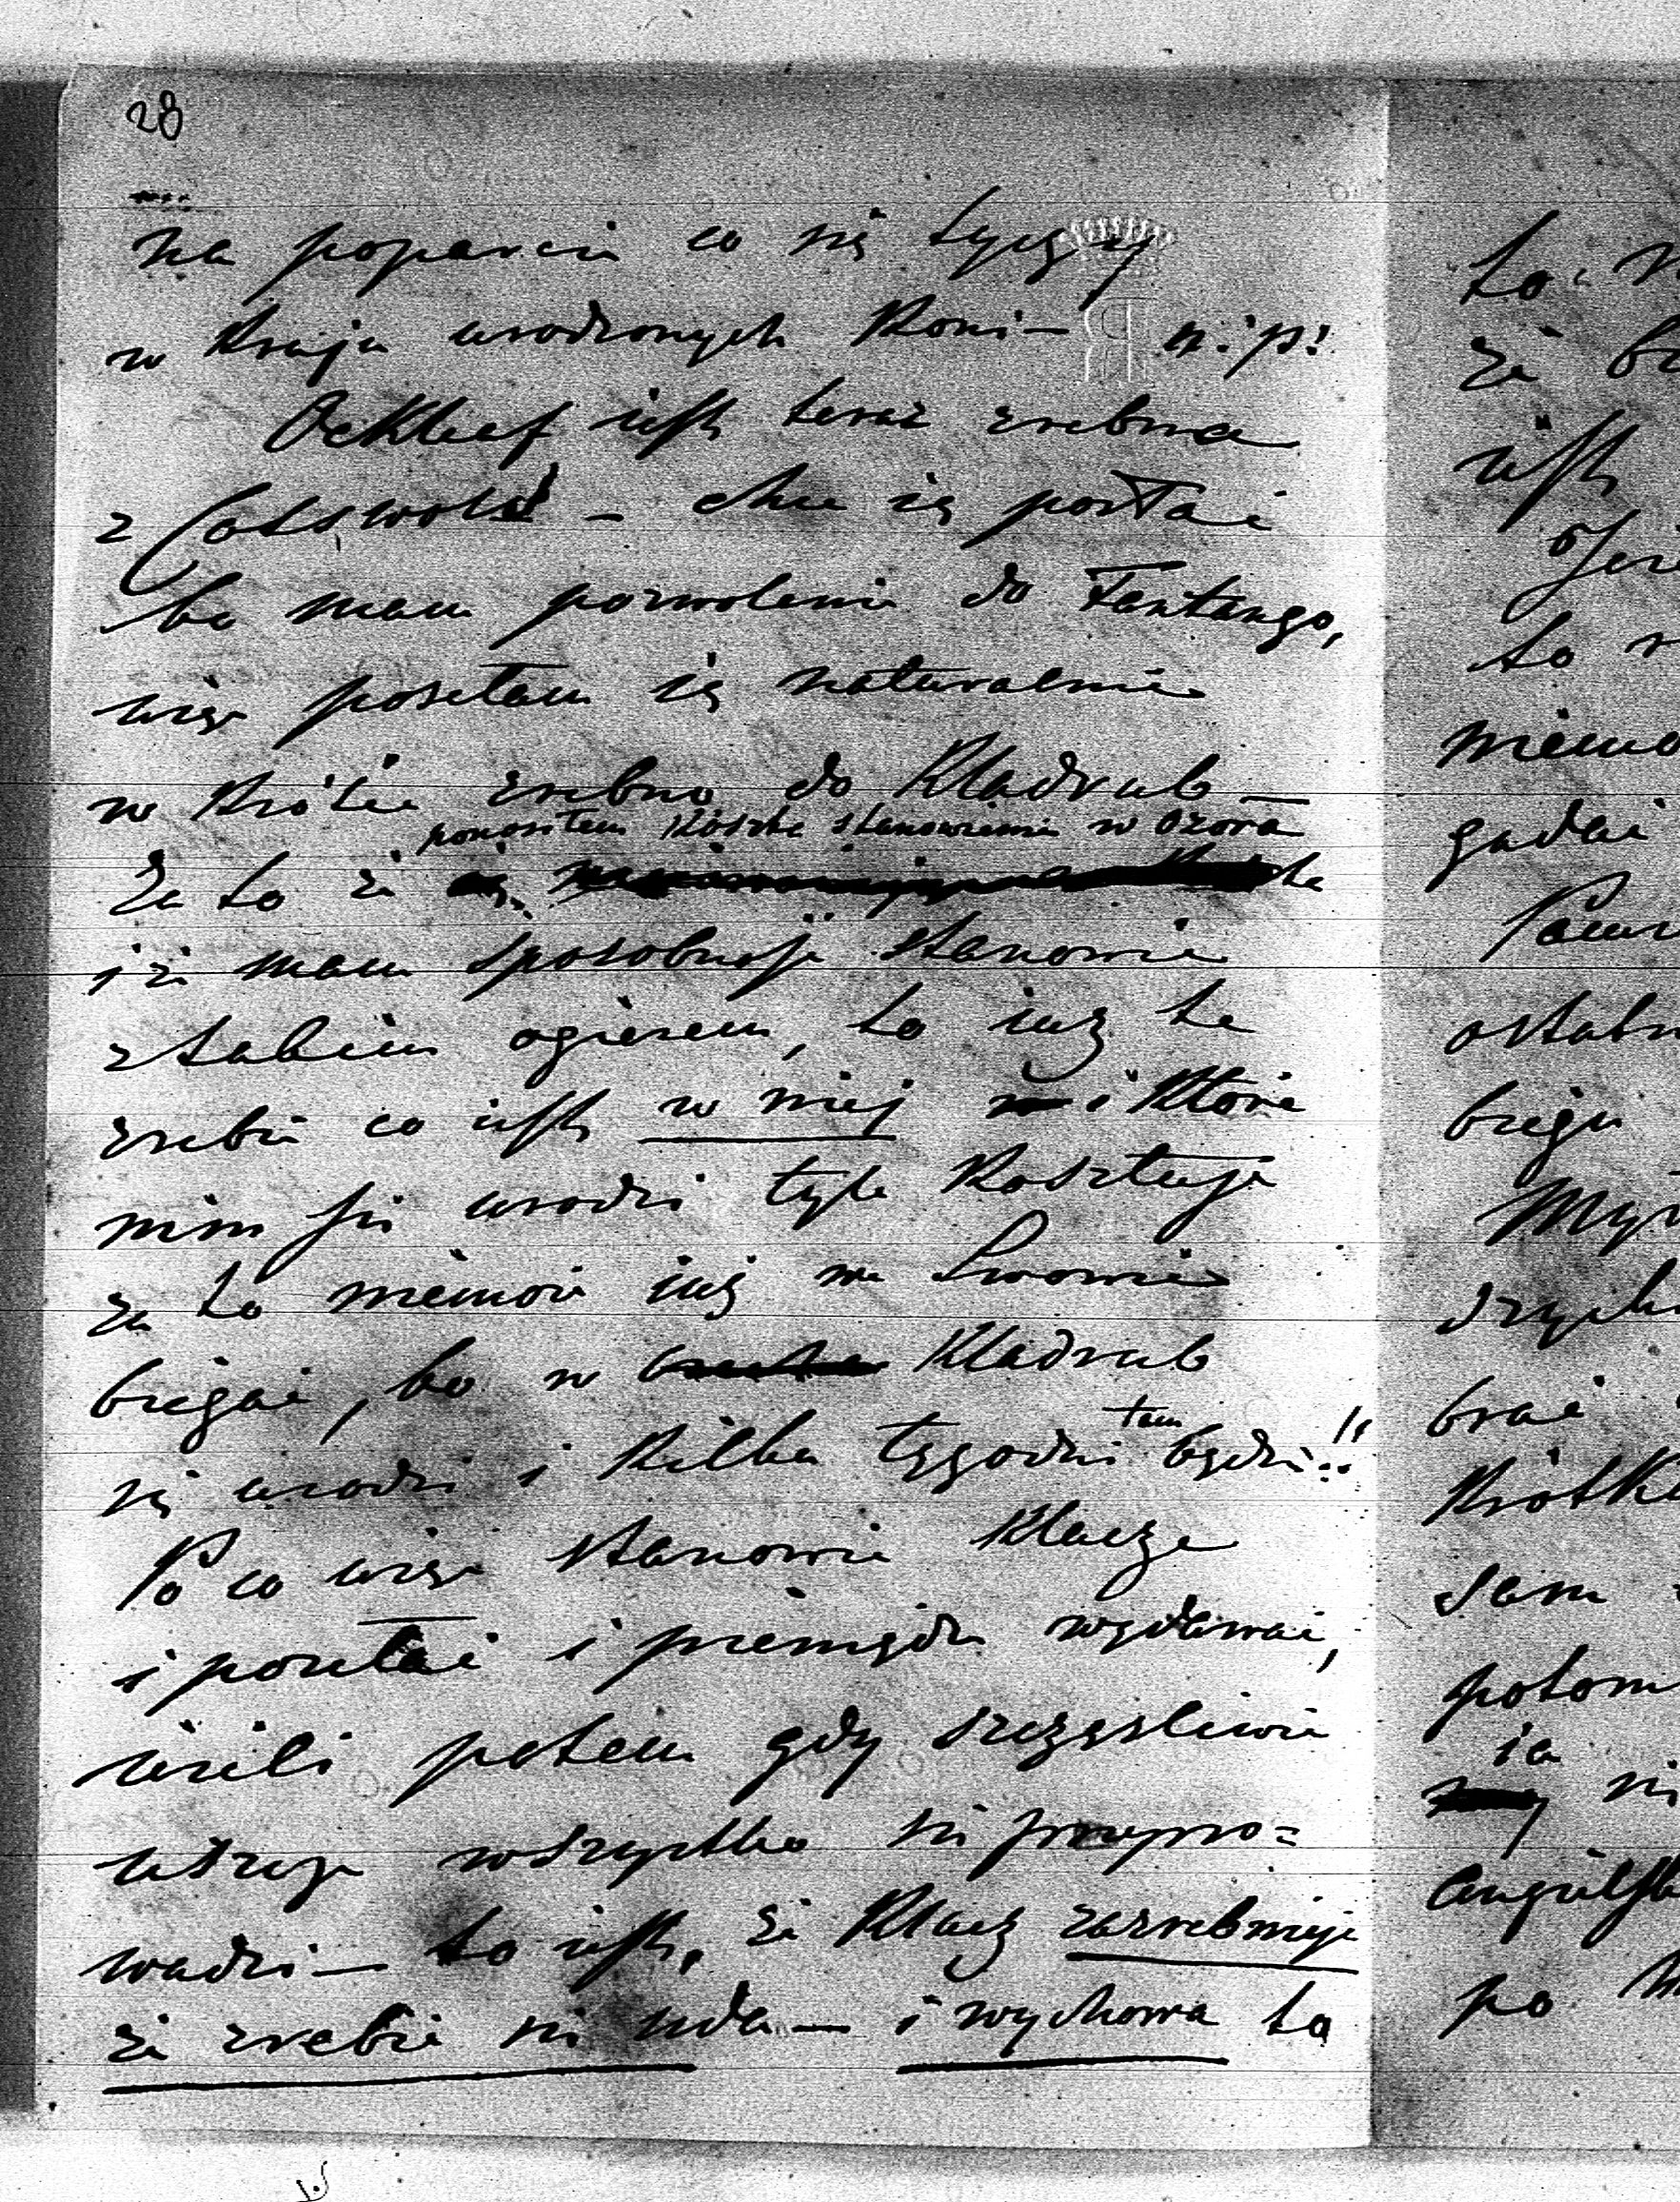 28
na poparcie co się tyczy
w kraju urodzonych koni – n. p.
Ocklief jest teraz źrebna
z Cotswold – chce ją posłać
bo mam pozwolenie do Fantango,
więc posełam ją naturalnie
w krótce źrebną do Kladrub –
ponosiłem koszta stanowienia w Ozora
Za to że
i że mam sposobność stanowić
z takim ogierem, to już te
źrebie co jest w niej i które
nim się urodzi tyle kosztuje
za to niemoże już we Lwowie
biegać, bo w Kladrub
się urodzi i kilka tygodni tam będzie!!
Po co więc stanowić klacze
i posełać i pieniądze wydawać,
jeżeli potem gdy szczęśliwie
wszystko się przepro=
wadzi – to jest, że klacz zaźrebnieje
że źrebie się uda – i wychowa to
to
że
jest
to
niemo
gadać
ostatn
biegu
brać
krótk
sam
potom
ja
po